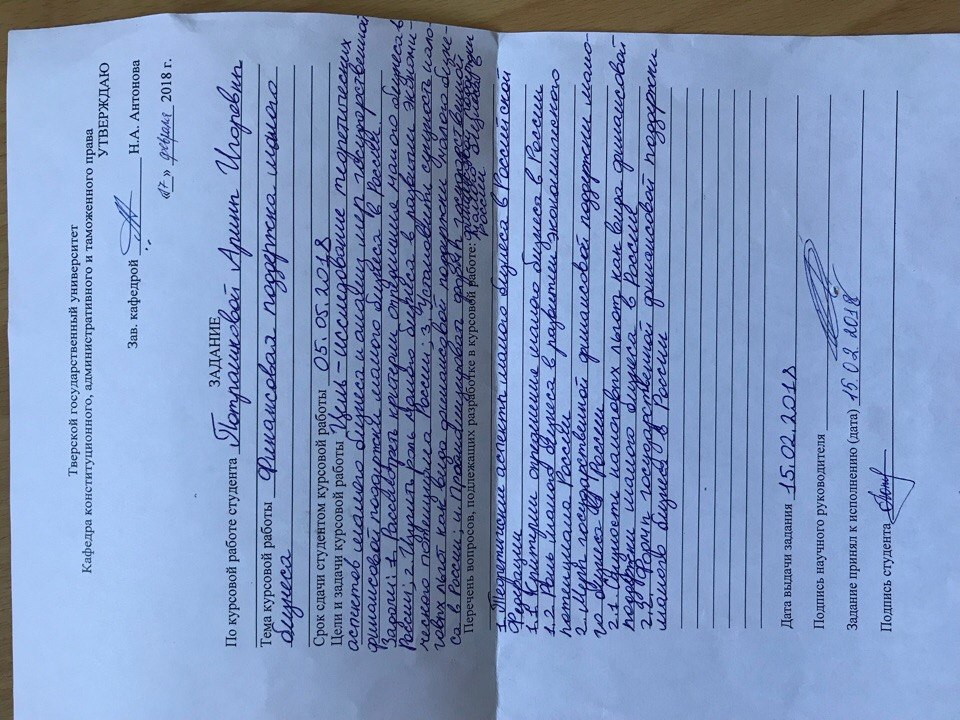 Тверской государственный университет
Кафедра конституционного, административного и таможенного права
УТВЕРЖДАЮ
Зав. кафедрой ________ Н.А. Антонова
«17» февраля 2018 г.
ЗАДАНИЕ
По курсовой работе студента Игоревны
Тема курсовой работы Финансовая поддержка малого
бизнеса
Срок сдачи студентом курсовой работы 05.05.2018
Цели и задачи курсовой работы Цель - исследование теоретических
аспектов малого бизнеса и анализ мер государственной
финансовой поддержки малого бизнеса в России.
Задачи: 1. Рассмотреть критерии отнесения малого бизнеса в
России; 2. Изучить роль малого бизнеса в развитии экономи-
ческого потенциала России; 3. Установить сущность нало-
говых льгот как вида финансовой поддержки малого бизне-
са в России; 4. Проанализировать формы государственной
Перечень вопросов, подлежащих разработке в курсовой работе: финансовой поддержки
малого бизнеса в
России
1. Теоретические аспекты малого бизнеса в Российской
Федерации
1.1 Критерии отнесения малого бизнеса в России
1.2 Роль малого бизнеса в развитии экономического
потенциала России
2. Меры государственной финансовой поддержки мало-
го бизнеса в России
2.1 Сущность налоговых льгот как вида финансовой
поддержки малого бизнеса в России
2.2. Формы государственной финансовой поддержки
малого бизнеса в России
Дата выдачи задания 15.02.2018
Подпись научного руководителя
Задание принял к исполнению (дата) 15.02.2018
Подпись студента